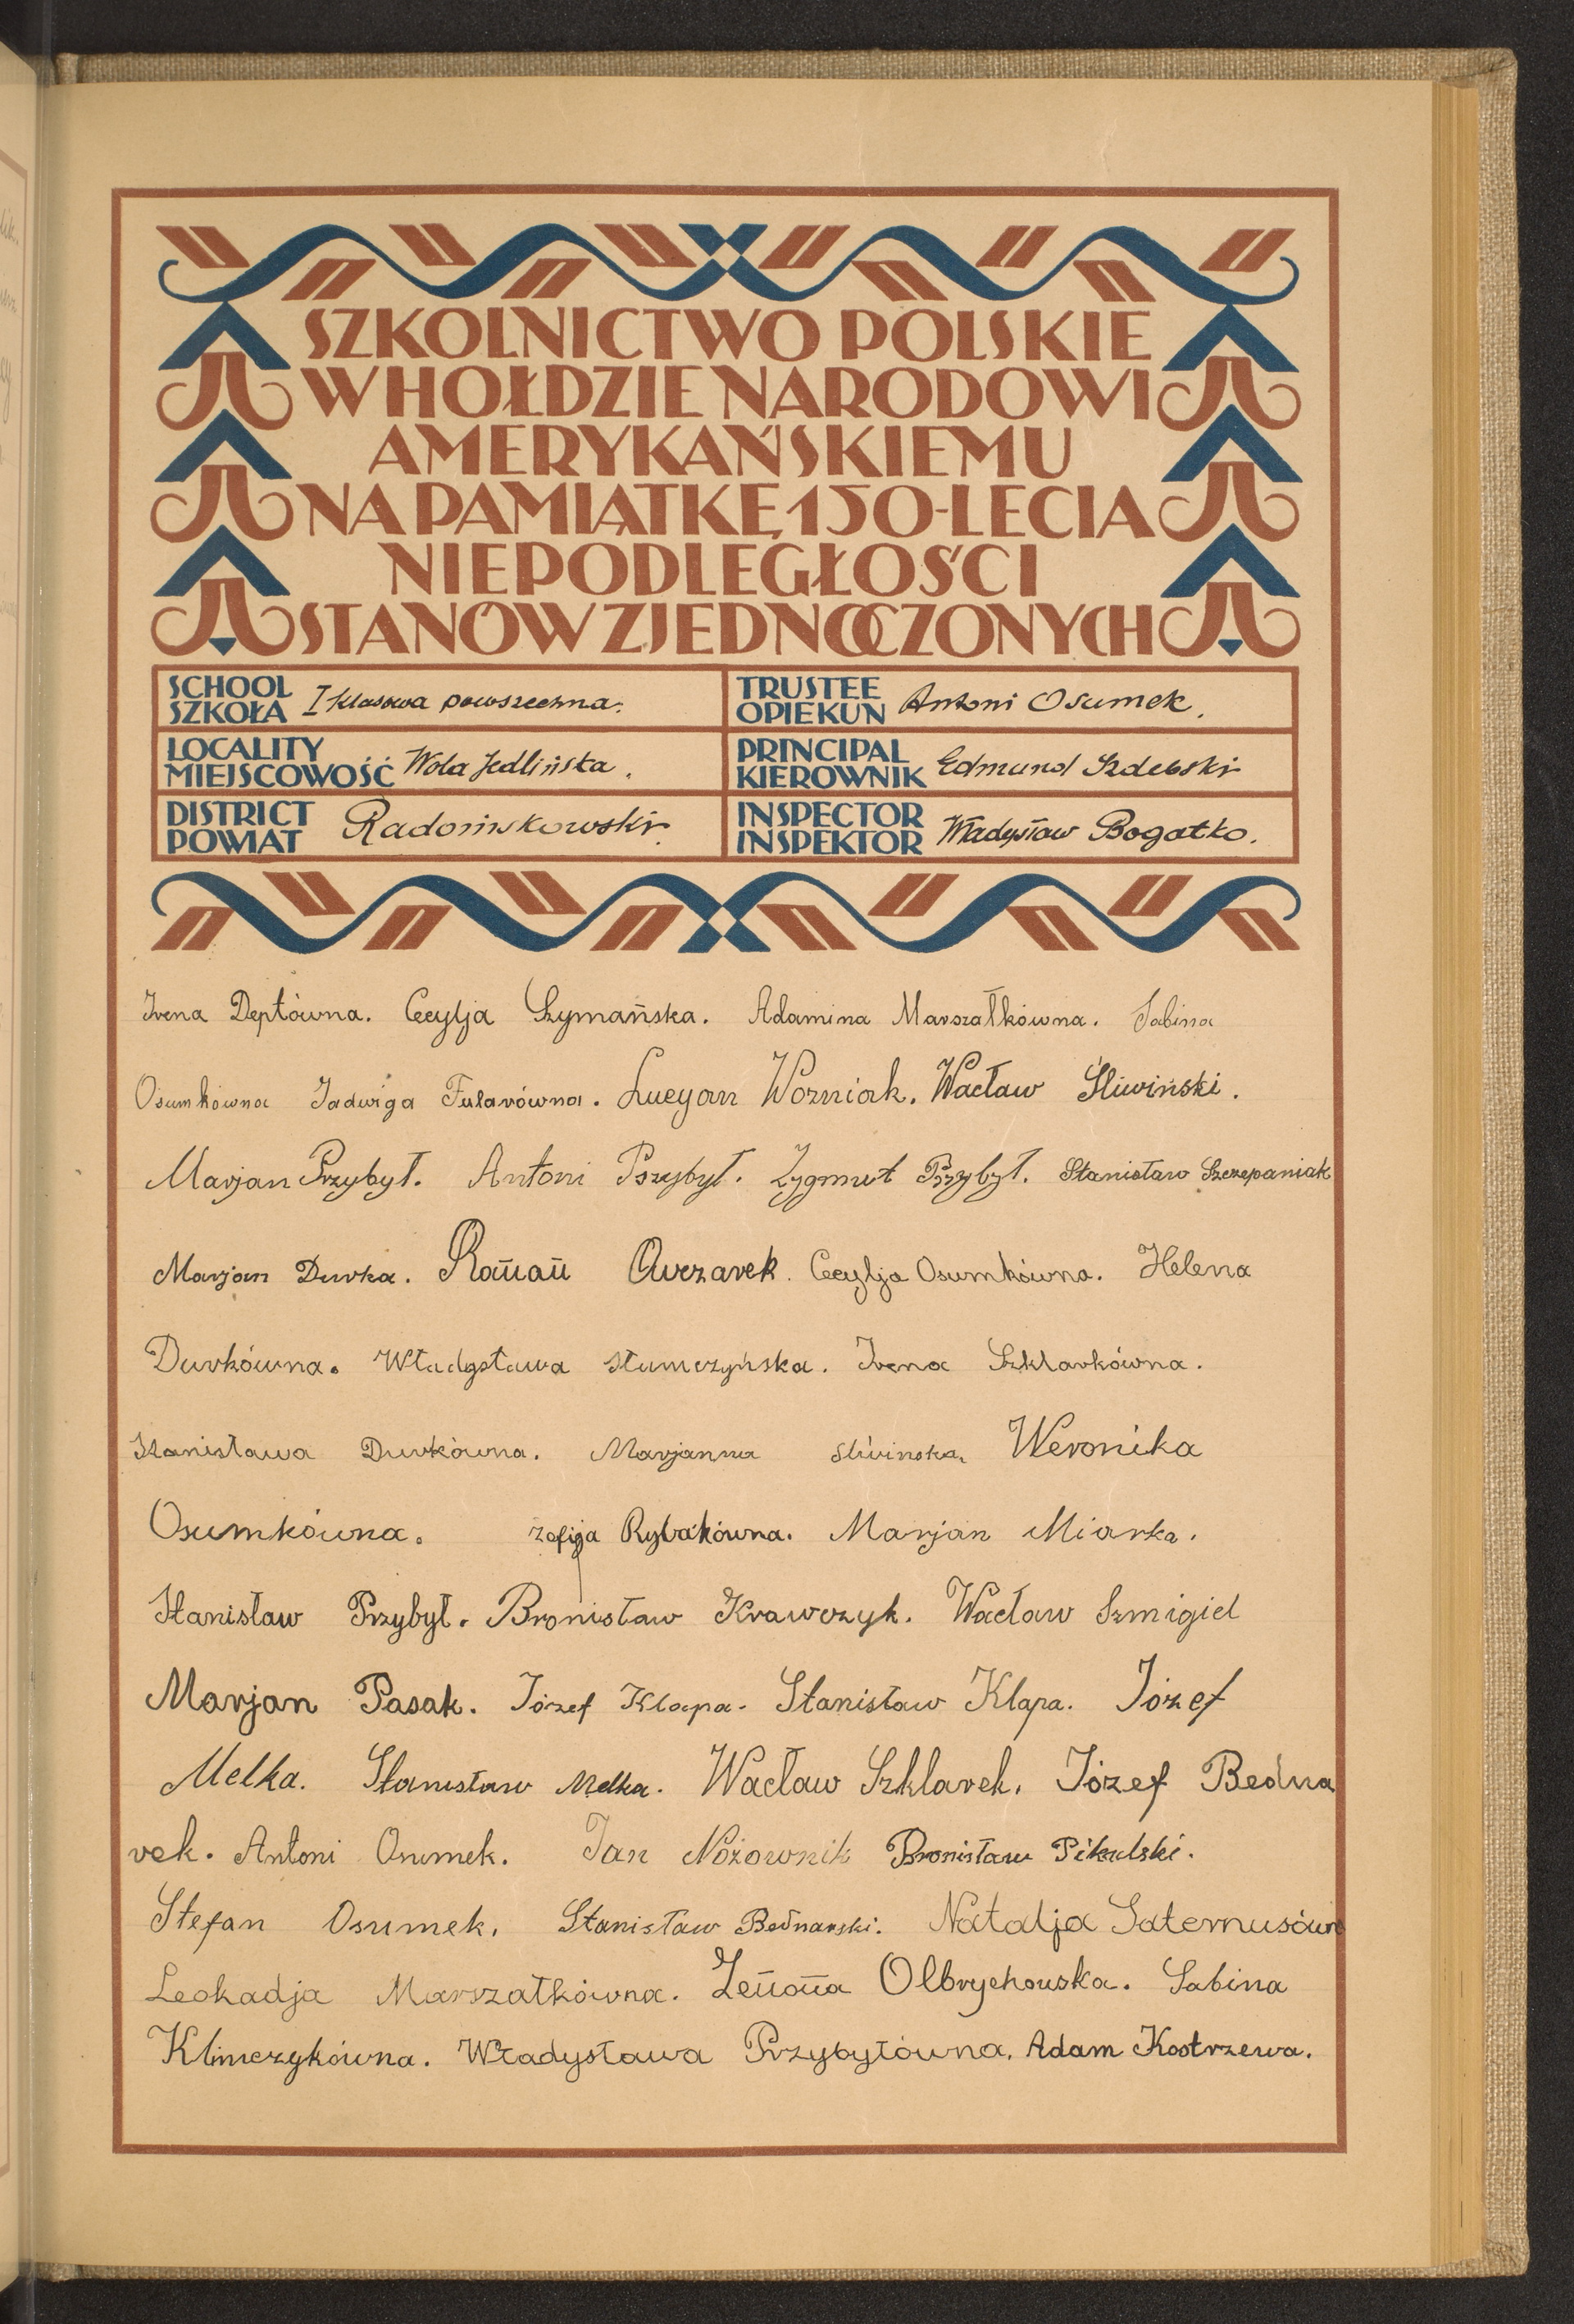 SZKOLNICTWO POLSKIE
W HOŁDZIE NARODOWI
AMERYKAŃSKIEMU
NA PAMIĄTKĘ 150-LECIA
NIEPODLEGŁOŚCI
STANÓW ZJEDNOCZONYCH
SCHOOL
SZKOŁA I klasowa powszechna.
TRUSTEE
OPIEKUN Antoni Osumek.
LOCALITY
MIEJSCOWOŚĆ Wola Jedlińska.
PRINCIPAL
KIEROWNIK Edmund Szdebski
DISTRICT
POWIAT Radomskowski.
INSPECTOR
INSPEKTOR Władysław Bogatko.
Irena Deptówna. Cecylja Szymańska. Adamina Marszałkówna. Sabina
Osumkówna Jadwiga Fularówna. Lucyan Wozniak. Wacław Śliwiński.
Marjan Przybył. Antoni Pszybył. Zygmut Przybył. Stanisław Szczepaniak
Marjan Durka. Roman Owczarek. Cecylja Osumkówna. Helena
Durkówna. Władysława Słumczyńska. Irena Szklarkówna.
Stanisława Durkówna. Marjanna Sliwinska. Weronika
Osumkówna. Zofija Rybakówna. Marjan Miarka.
Stanisław Przybył. Bronisław Krawczyk. Wacław Szmigiel
Marjan Pasak. Józef Klapa. Stanisław Klapa. Józef
Melka. Stanisław Melka. Wacław Szklarek. Józef Bedna
rek. Antoni Osumek. Jan Nożownik Bronisław Pikulski.
Stefan Osumek. Stanisław Bednarski. Natalja Saternusówn
Leokadja Marszałkówna. Zenona Olbrychowska. Sabina
Klimczykówna. Władysława Przybyłówna. Adam Kostrzewa.